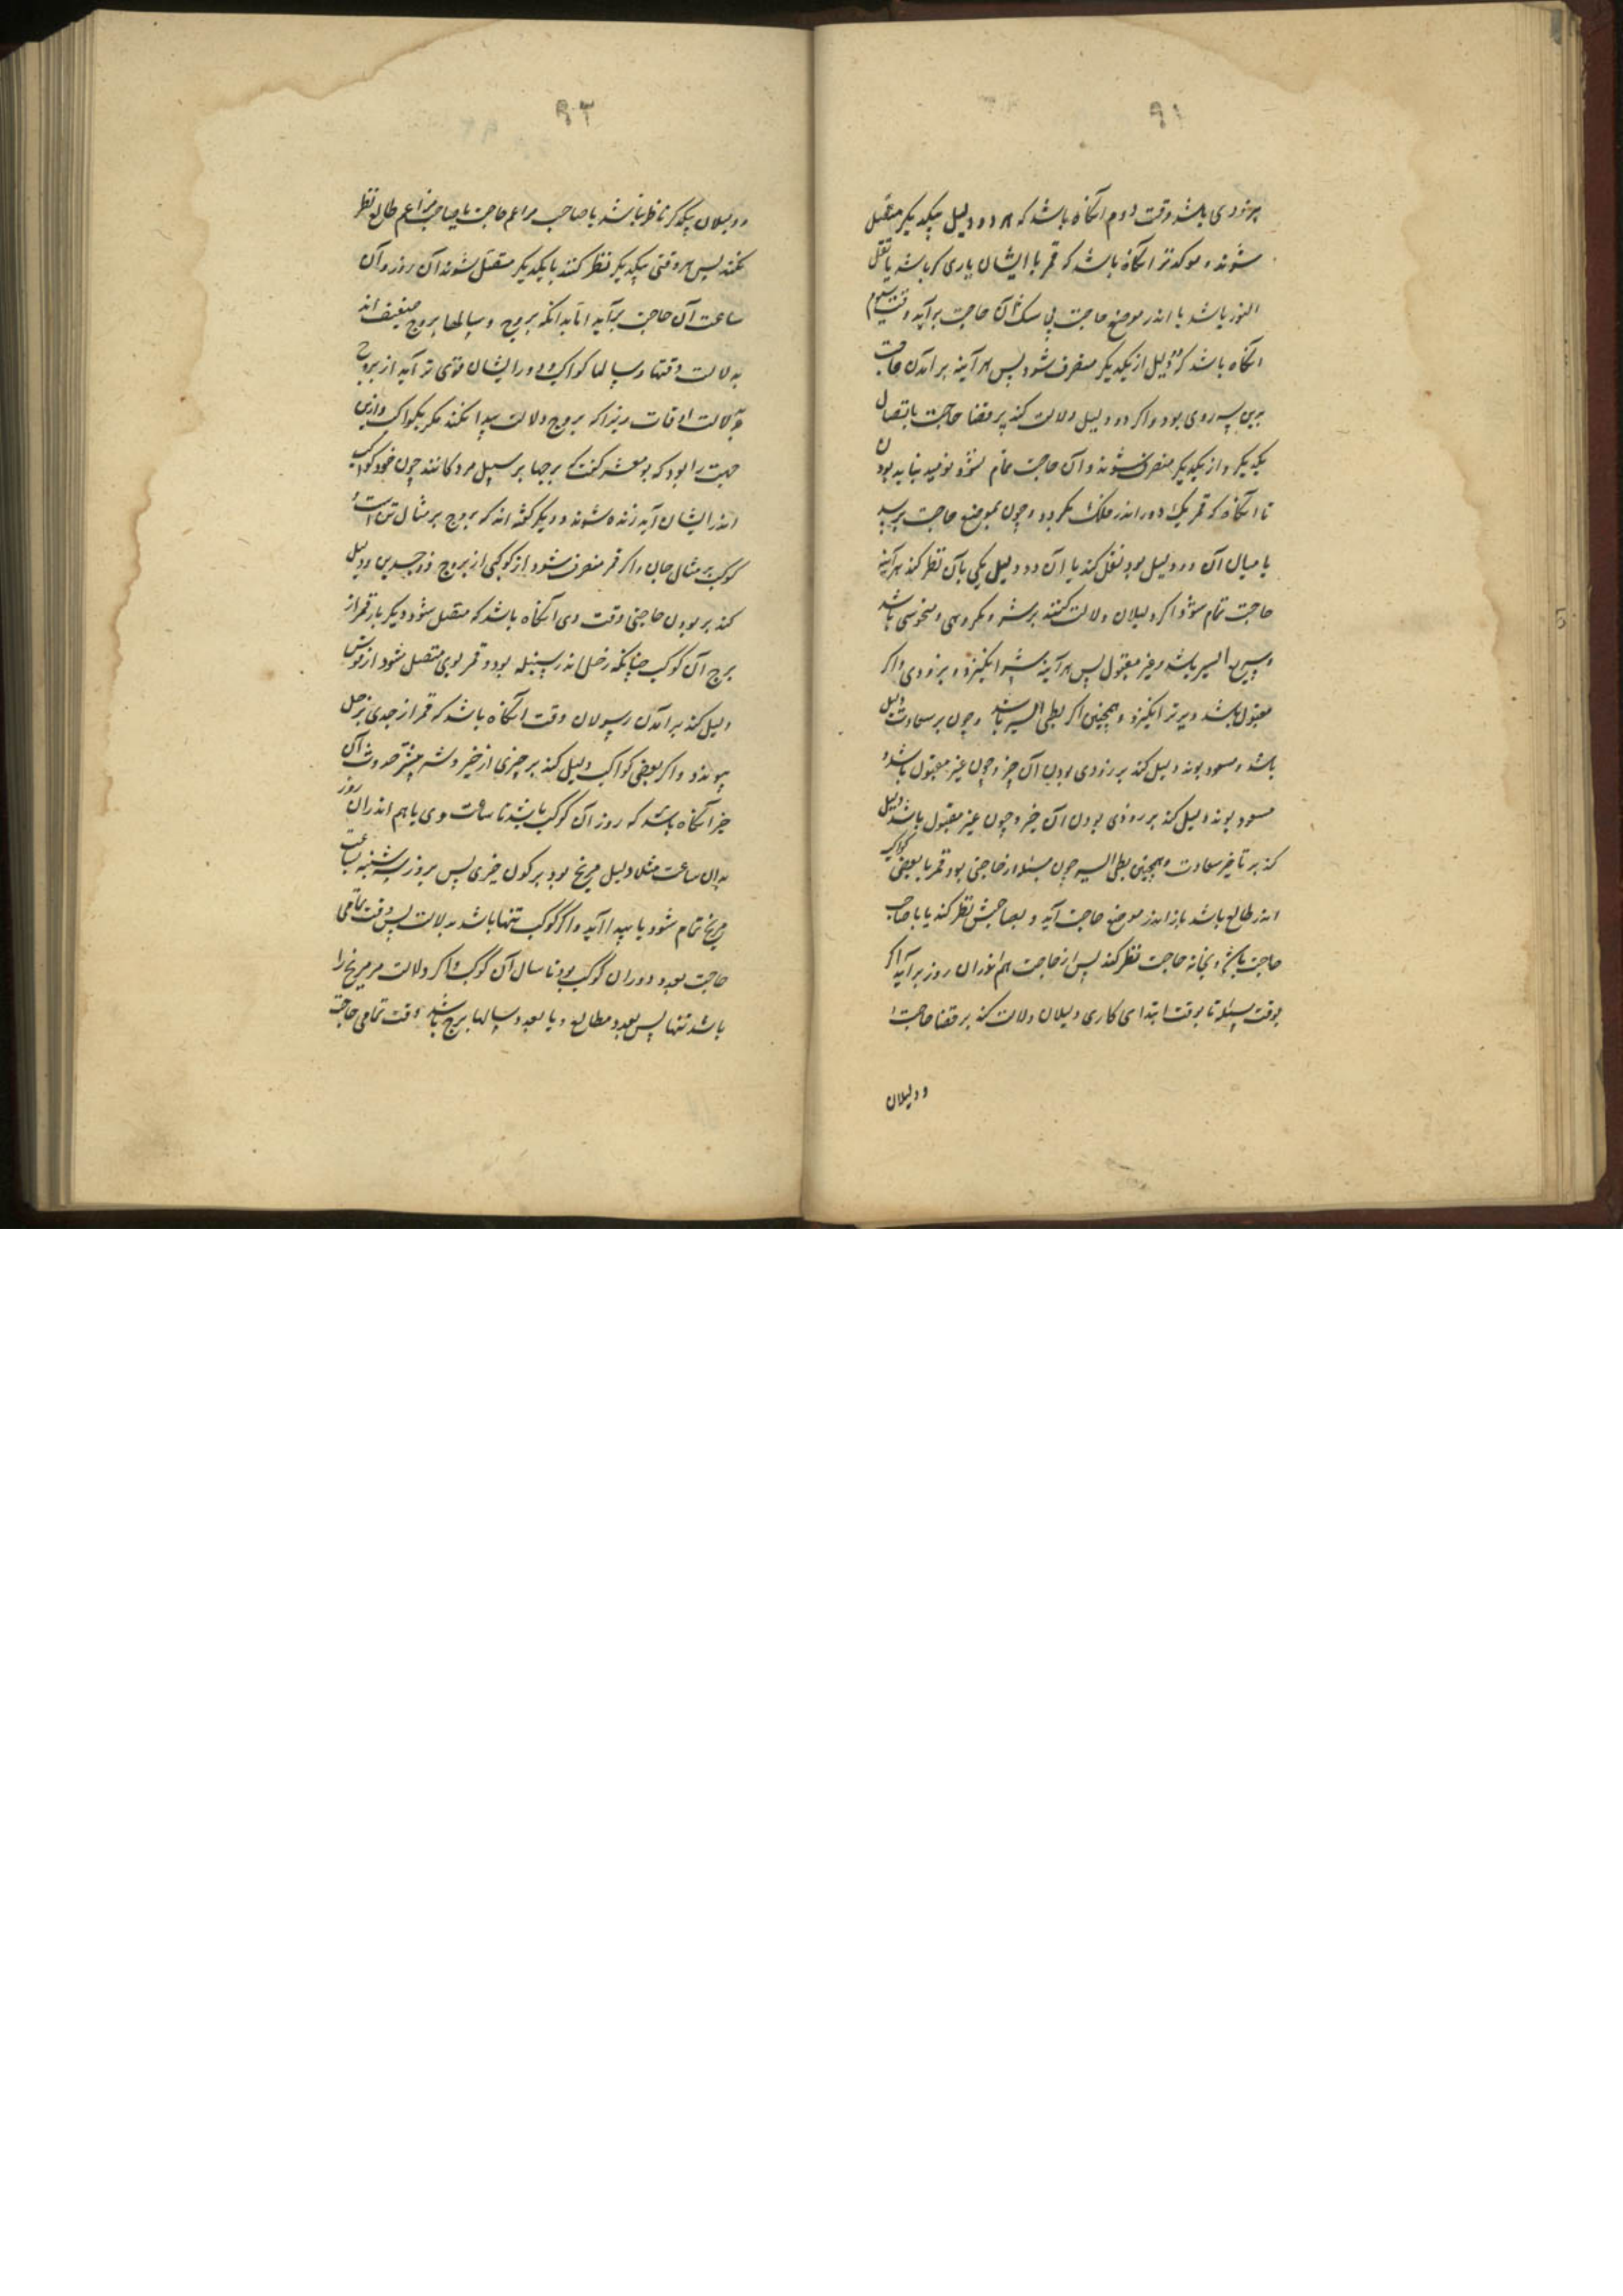 ٩١
بزودی باشد وقت دوم آنگاه باشد که هر دو دلیل بیکدیگر متصل
شوند و موکدتر آنگاه باشد که قمر با ایشان یاری گر باشد یا نقل
النور باشد با اندر موضع حاجت بی شک آن حاجت برآید وقت سیوم
آنگاه باشد که دو دلیل از یکدیگر منصرف شود پس هر آینه برآمدن حاجت
برین روی بود و اگر دو دلیل دلالت کند بر قضا حاجت باتصال
یکدیگر و از یکدیگر منصرف شوند و آن حاجت تمام نشود نومید نباید بودن
تا آنگاه که قمر یک دور اندر فلک بگردد و چون بموضع حاجت برسد
یا میان آن دو دلیل بود نقل کند یا آن دو دلیل یکی بآن نظر کند هر آینه
حاجت تمام شود و اگر دلیلان دلالت کنند بر شر و مکروهی و منحوسی باشد
و سریع السیر باشد و غیر مقبول پس هر آینه شر انگیزد و بزودی و اگر
مقبول باشد دیرتر انگیزد و همچنین اگر بطی السیر باشد و چون بر سعادت دلیل
باشد و مسعود بوند دلیل کند بر زودی بودن آن چیز و چون غیر مقبول باشد و
مسعود بوند دلیل کند بر زودی بودن آن خیر و چون غیر مقبول باشد دلیل
کند بر تاخیر سعادت و همچنین بطی السیر چون مسئله از حاجتی بود قمر با بعضی کواکب
اندر طالع باشد باز اندر موضع حاجت آید و بصاحبش نظر کند یا با صاحب
حاجت باشد و بخانه حاجت نظر کند پس از حاجت هم اندران روز برآید اگر
بوقت مسئله تا بوقت ابتدای کاری دلیلان دلالت کند بر قضا حاجت و
ودلیلان
٩٢
ودلیلان بیکدیگر ناظر نباشد یا صاحب حاجت با صاحب طالع نظر
نکند پس هر وقتی بیکدیگر نظر کنند یا بیکدیگر متصل شوند آن روز و آن
ساعت آن حاجت برآید اما بدانکه بروج و سالها بروج ضعیف اند
بدلالت وقتها و سالها کواکب و دور ایشان قوی تر آید از بروج
بدلالت اوقات زیرا که بروج دلالت پیدا نکند مگر بکواکب و ازین
جهت را بود که بومعشر گفت برجها بر سبیل مردگانند چون خود کواکب
اندر ایشان آید زنده شوند و دیگر گفته اند که بروج بر مثال تن است و
کوکب بر مثال جان و اگر قمر منصرف شود از کوکبی از بروج ذوجسدین و دلیل
کند بر بودن حاجتی وقت وی آنگاه باشد که متصل شود دیگر بار قمر از
برج آن کوکب چنانکه زحل اندر سنبله بود و قمر بوی متصل شود از قوس
دلیل کند بر آمدن رسولان وقت آنگاه باشد که قمر از جدی بزحل
پیوندد و اگر بعضی کواکب دلیل کند بر چیزی از خیر و شر حدوث آن
خیر آنگاه باشد که روز آن کوکب باشد تا ساعت وی یا هم اندران روز
بدان ساعت مثلا دلیل مریخ بود بر کون خبری پس بروز سه شنبه بساعت
مریخ تمام شود یا پیدا آید و اگر کوکب تنها باشد بدلالت پس وقت تمامی
حاجت بعدد دوران کوکب بود تا سال آن کوکب و اگر دلالت مر مریخ را
باشد تنها پس بعدد مطالع و یا بعدد سالها برج باشد وقت تمامی حاجت